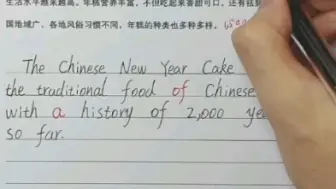 生活水平越来越高。年糕营养丰富，不但吃起来香甜可口，还有祛
国地域广、各地风俗习惯不同，年糕的种类也多种多样。
The Chinese New Year Cake
the traditional food of Chinese
with a history of 2,000
so far.